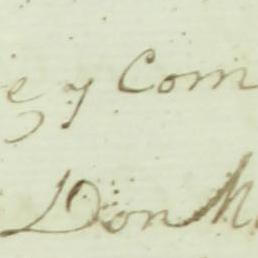 e y Com
Don M